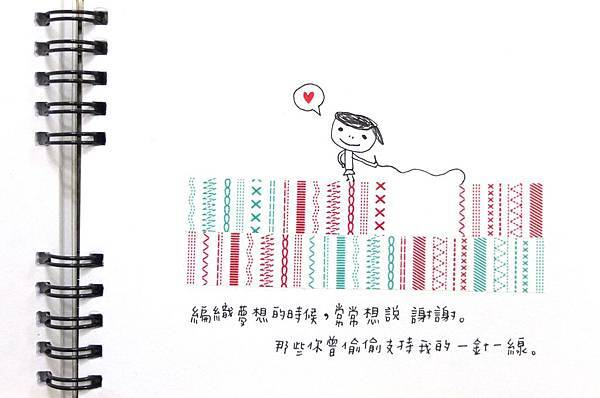 編織夢想的時候，常常想說 謝謝。
那些你曾偷偷支持我的一針一線。